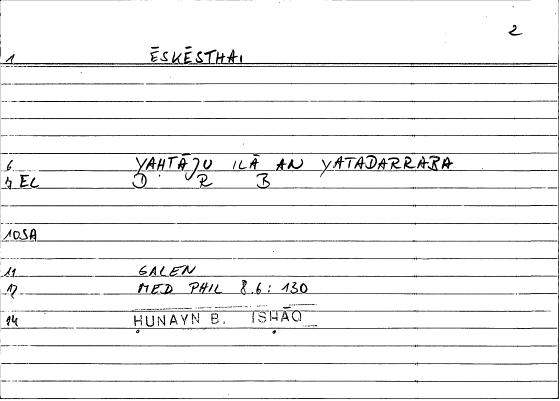 2
1 ĒSKĒSTHAI
6 YAḤTĀJU ILĀ AN YATADARRABA
7 EL D R B
10SA
11 GALEN
12 MED PHIL 8.6: 130
14 ḤUNAYN B. ISḤĀQ